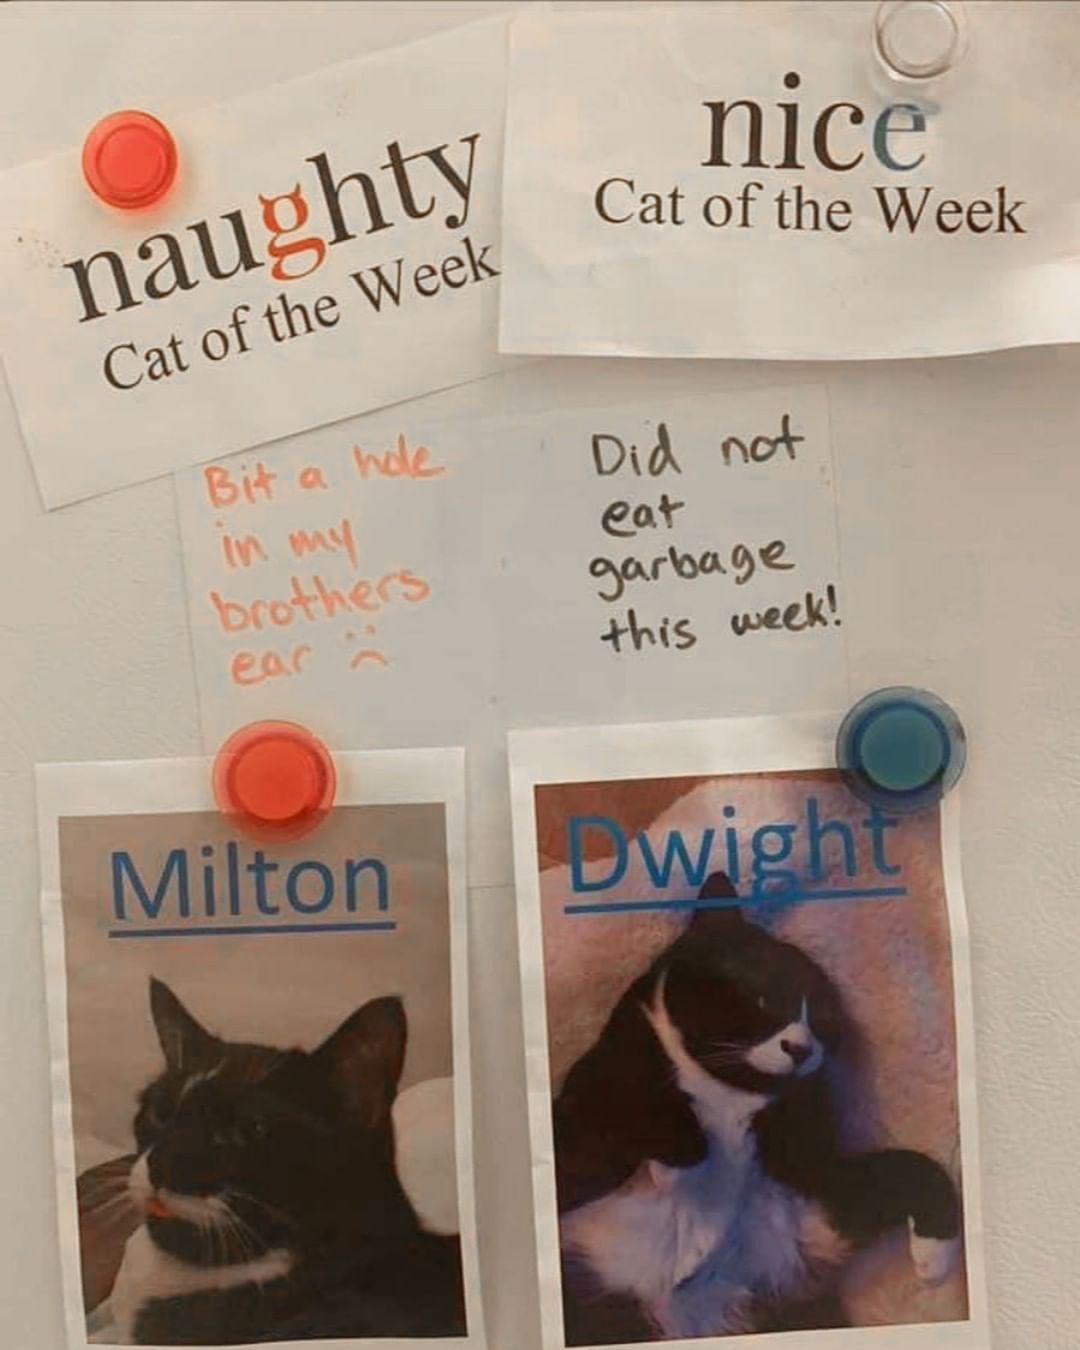 naughty
Cat of the Week
nice
Cat of the Week
Bit a hole
in my
brothers
ear :(
Did not
eat
garbage
this week!
Milton
Dwight